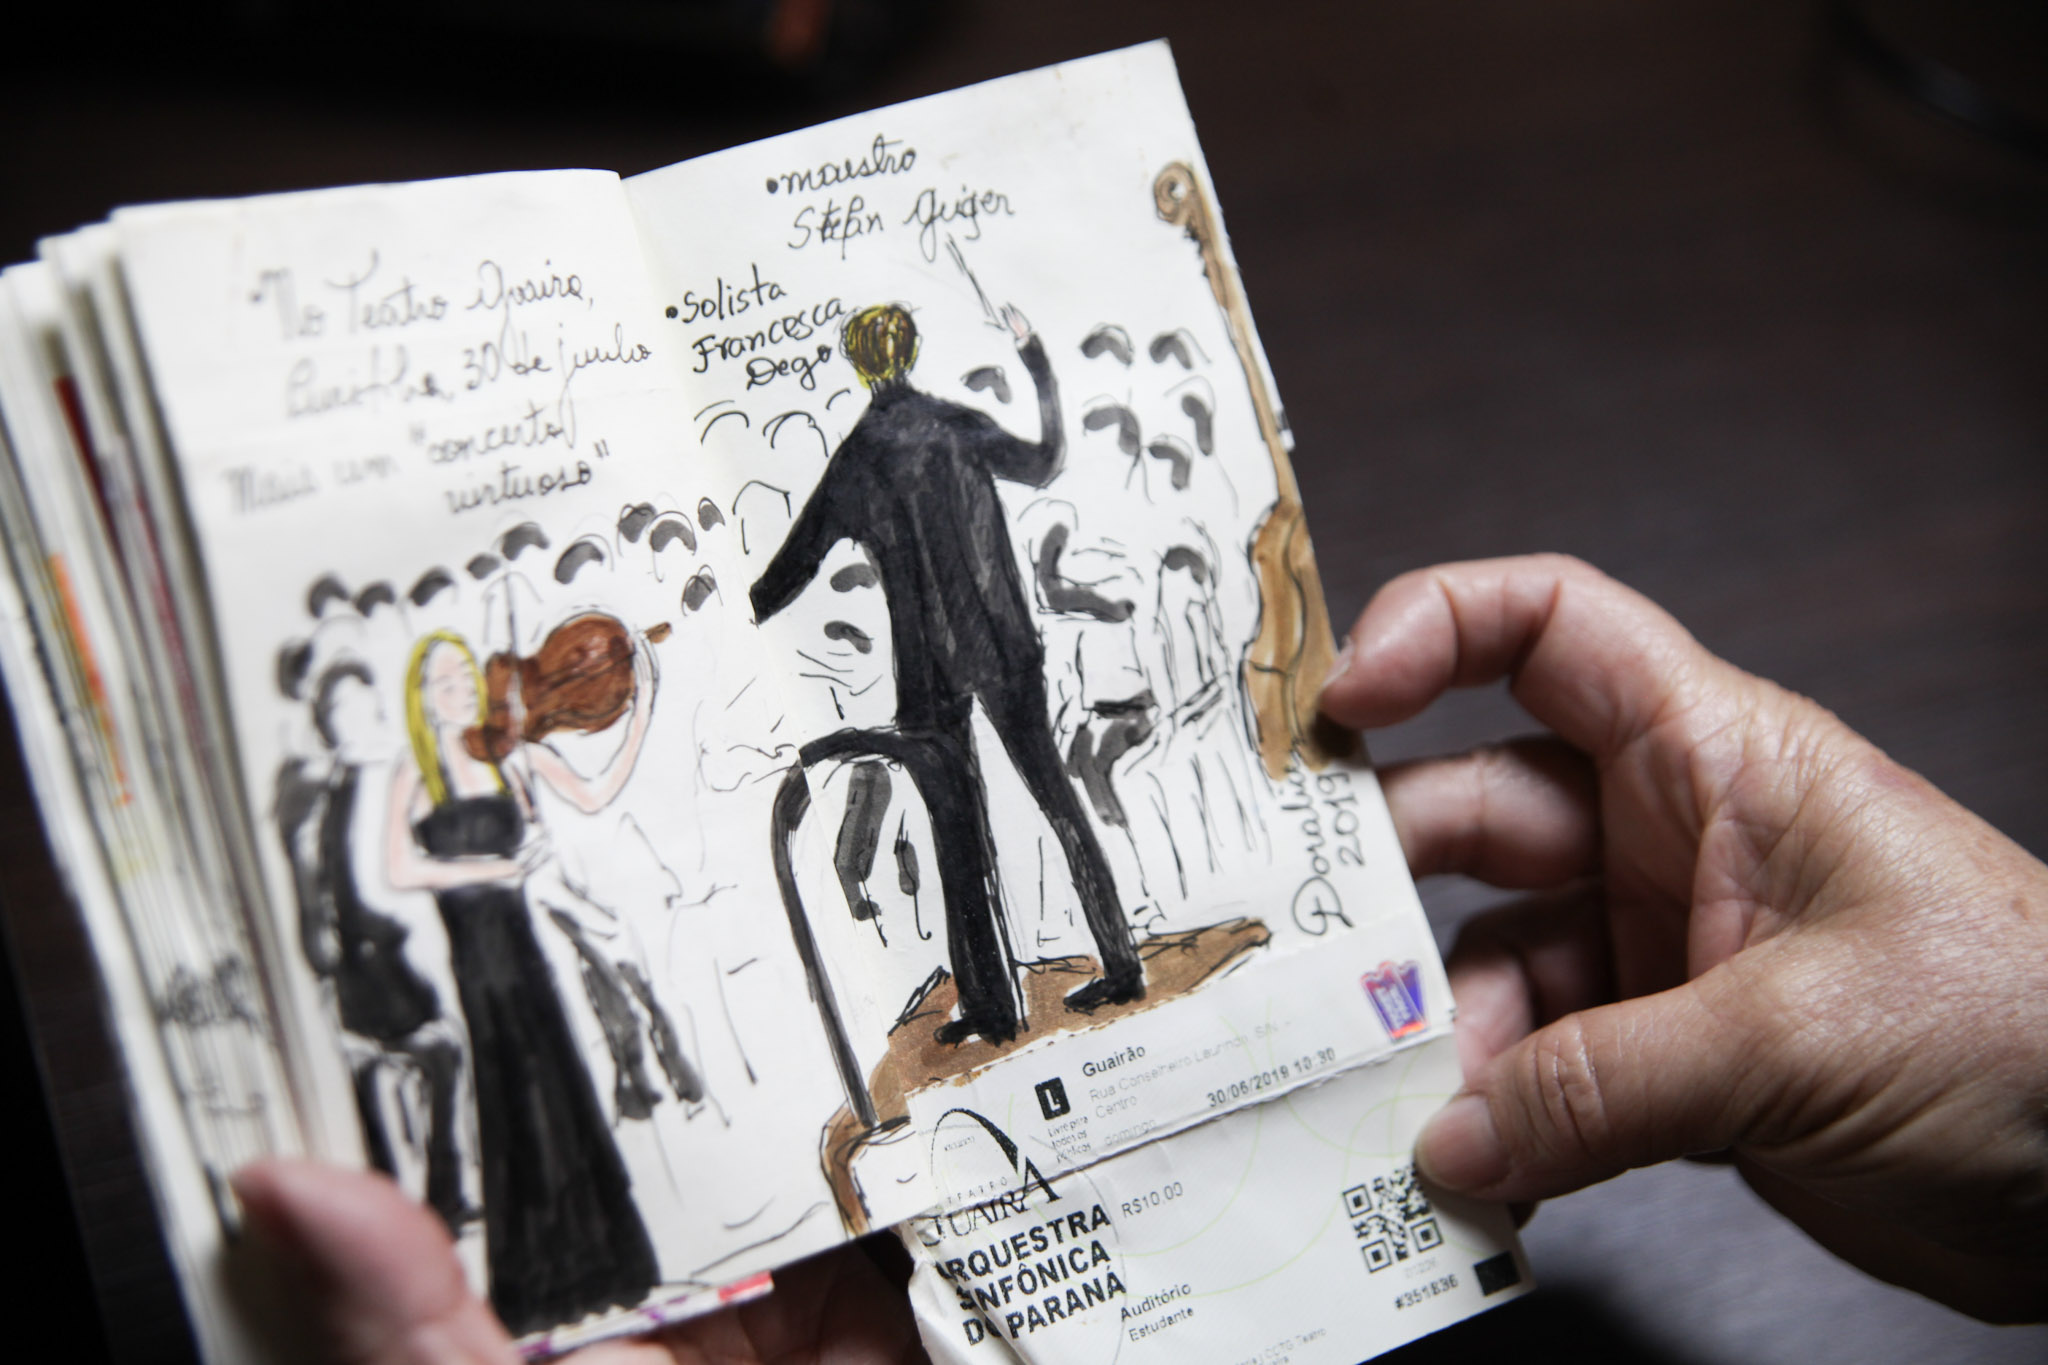 •No Teatro Guaira,
Curitiba, 30 de junho
mais um "concerto
virtuoso"
•maestro
Stefan Geiger
•Solista
Francesca
Dego
Doralice
2019
Guairão
Rua Conselheiro Laurindo, S/N -
Centro
domingo
30/06/2019 10:30
L
Livre para
todos os
públicos
TEATRO
GUAIRA
ORQUESTRA
SINFÔNICA
DO PARANÁ
R$10,00
Auditório
Estudante
#351836
CCTG Teatro